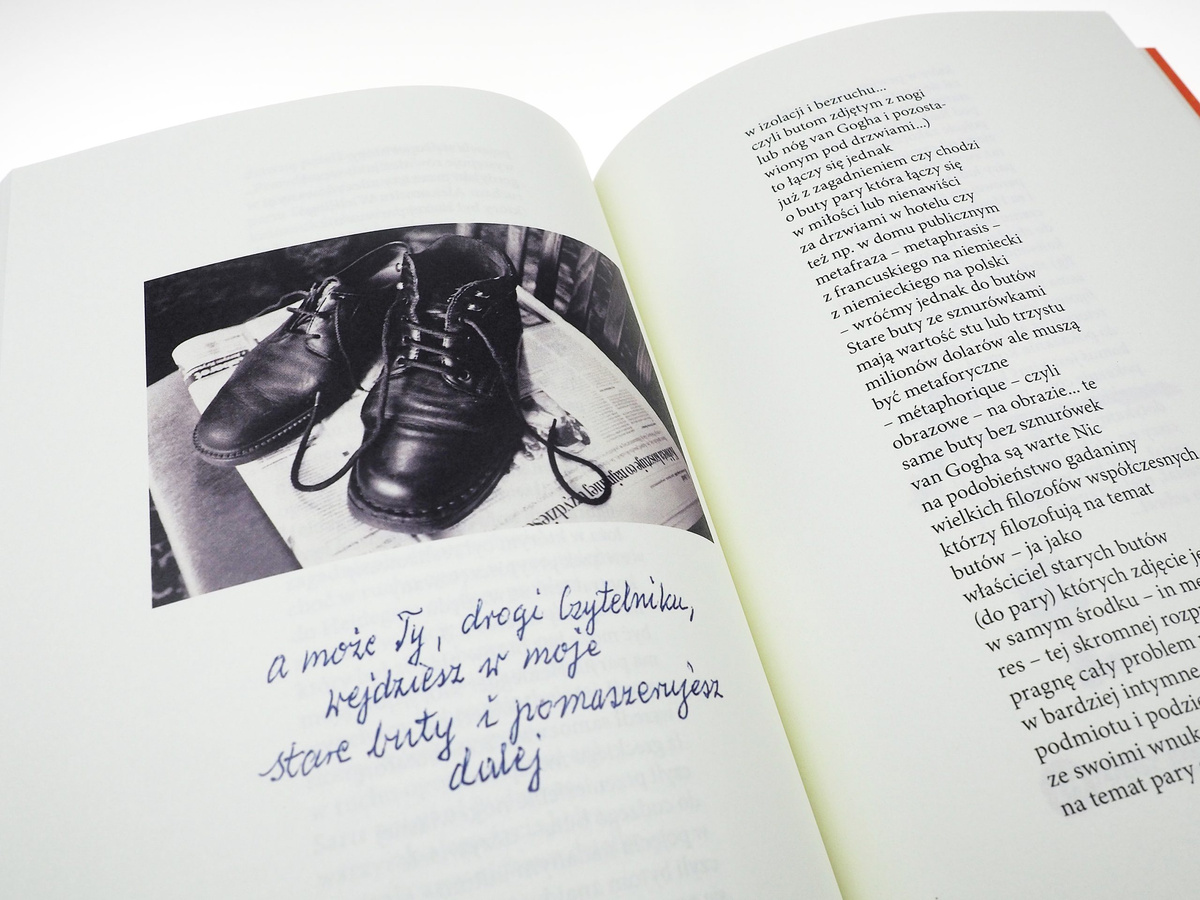 a może Ty, drogi Czytelniku,
wejdziesz w moje
stare buty i pomaszerujesz
dalej
w izolacji i bezruchu...
czyli butom zdjętym z nogi
lub nóg van Gogha i pozosta-
wionym pod drzwiami...)
to łączy się jednak
już z zagadnieniem czy chodzi
o buty pary która łączy się
w miłości lub nienawiści
za drzwiami w hotelu czy
też np. w domu publicznym
metafraza – metaphrasis –
z francuskiego na niemiecki
z niemieckiego na polski
– wróćmy jednak do butów
Stare buty ze sznurówkami
mają wartość stu lub trzystu
milionów dolarów ale muszą
być metaforyczne
– métaphorique – czyli
obrazowe – na obrazie... te
same buty bez sznurówek
van Gogha są warte Nic
na podobieństwo gadaniny
wielkich filozofów współczesnych
którzy filozofują na temat
butów – ja jako
właściciel starych butów
(do pary) których zdjęcie
w samym środku – in
res – tej skromnej
pragnę cały problem
w bardziej intymne
podmiotu i
ze swoimi
na temat pary